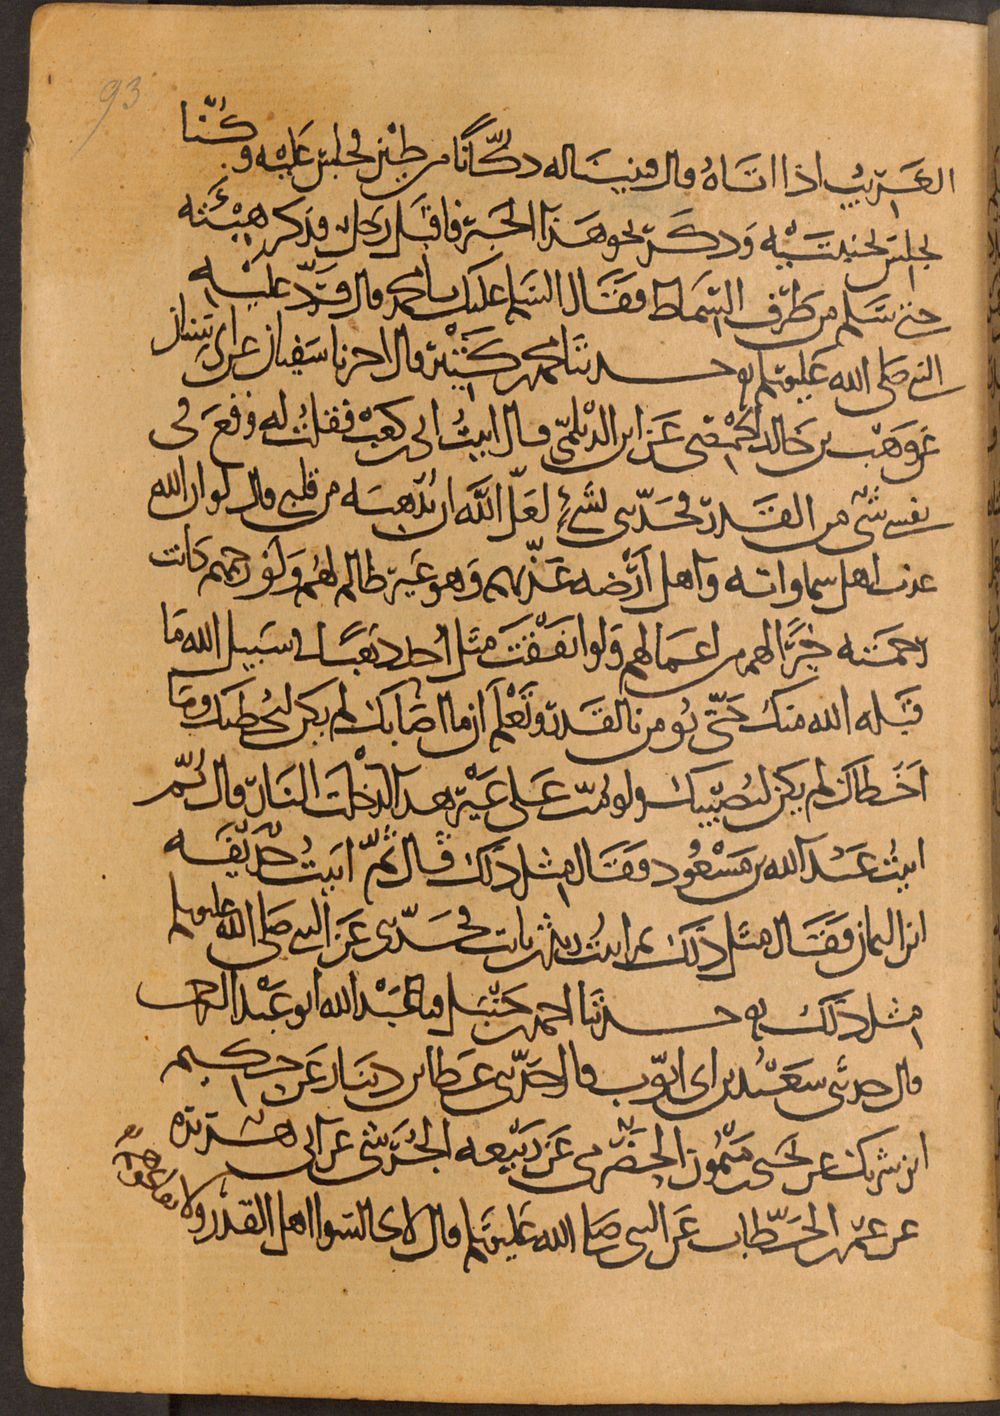 93
الغريب اذا اتاه قال فبنينا له دكانا من طين فجلس عليه وكنا
نجلس بجنبتيه وذكر نحو هذا الخبر فاقبل رجل فذكر هيئته
حتى سلم من طرف السماط فقال السلم عليك يا محمد قال فرد عليه
النبي صلى الله عليه وسلم حدثنا محمد بن كثير قال اخبرنا سفيان عن ابي سنان
عن وهب بن خالد الحمصي عن ابن الديلمي قال اتيت ابي بن كعب فقلت له وقع في
نفسي شي من القدر فحدثني لشئ لعل الله ان يذهبه من قلبي قال لو ان الله
عذب اهل سماواته واهل ارضه عذبهم وهو غير ظالم لهم ولو رحمهم كانت
رحمته خيرا لهم من اعمالهم ولو انفقت مثل احد ذهبا في سبيل الله ما
قبله الله منك حتى تومن بالقدر وتعلم ان ما اصابك لم يكن ليخطيك وما
اخطاك لم يكن ليصيبك ولو مت على غير هذا لدخلت النار قال ثم
اتيت عبد الله بن مسعود فقال مثل ذلك قال ثم اتيت حذيفه
ابن اليمان فقال مثل ذلك ثم اتيت زيد بن ثابت فحدثني عن النبي صلى الله عليه وسلم
مثل ذلك حدثنا احمد بن حنبل نا عبد الله ابو عبد الرحمن
قال حدثني سعيد بن ابي ايوب قال حدثني عطا بن دينار عن حكيم
ابن شريك عن يحيى بن ميمون الحضرمي عن ربيعه الجرشي عن ابي هريره
عن عمر بن الخطاب عن النبي صلى الله عليه وسلم قال لا تجالسوا اهل القدر ولا
تفاتحوهم